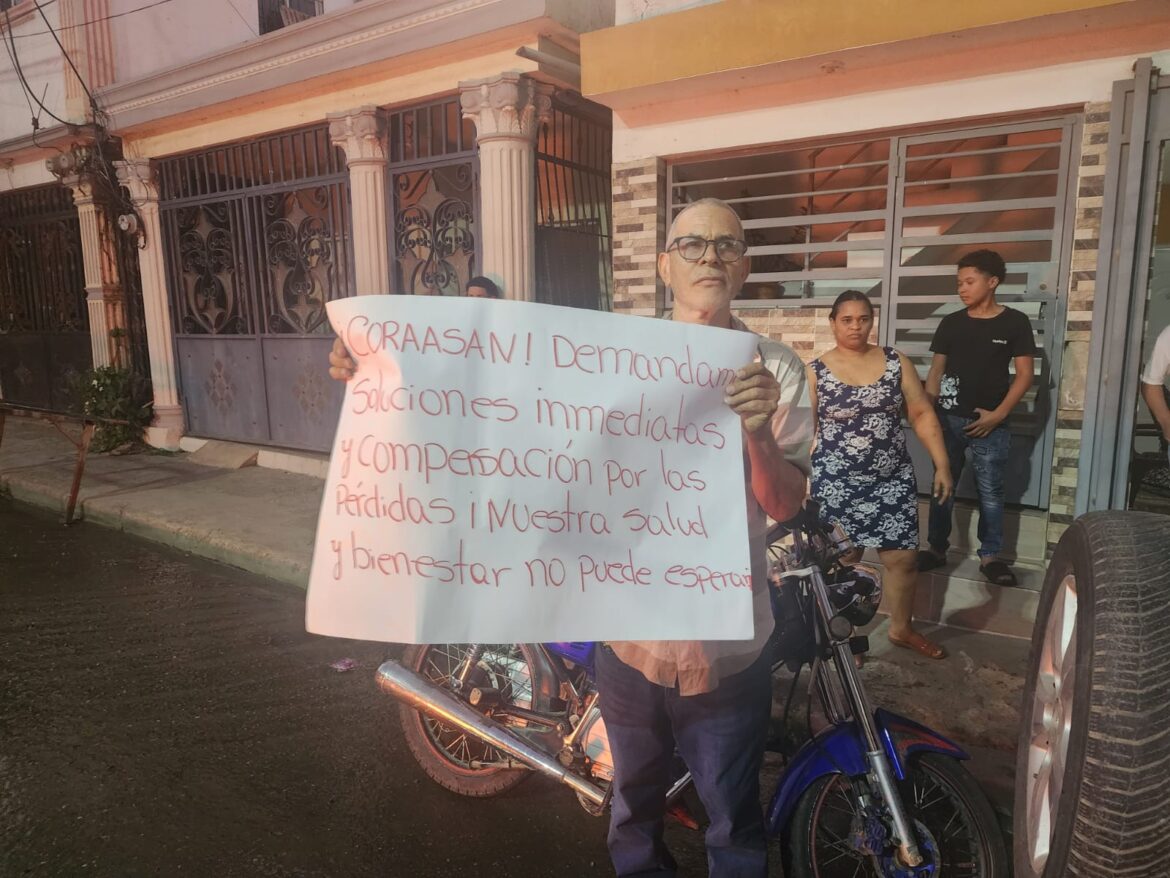 ¡CORAASAN! Demandam
soluciones inmediatas
y compersación por las
Pérdidas ¡ Nuestra salud
y bienestar no puede esperar